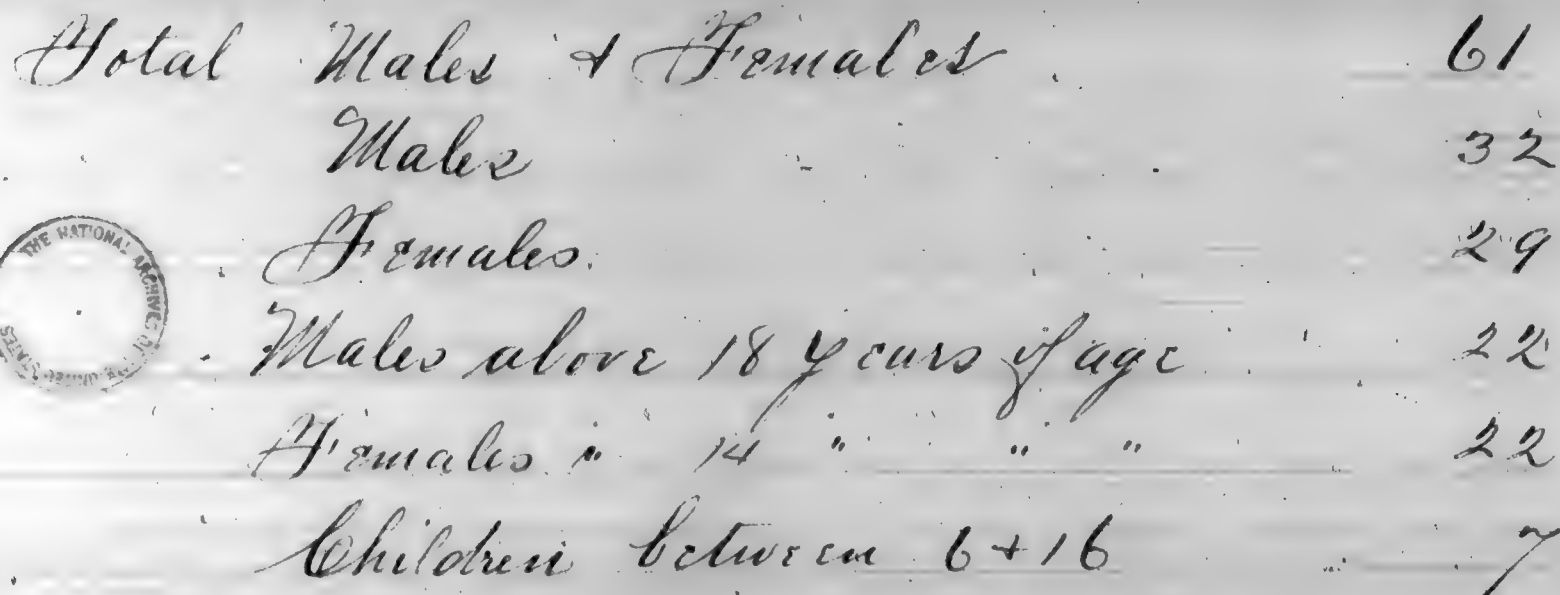 Total Males & Females 61
Males 32
Females. 29
THE NATIONAL ARCHIVES OF THE UNITED STATES
Males above 18 years of age 22
Females " 14 " " " 22
Children between 6 & 16 7